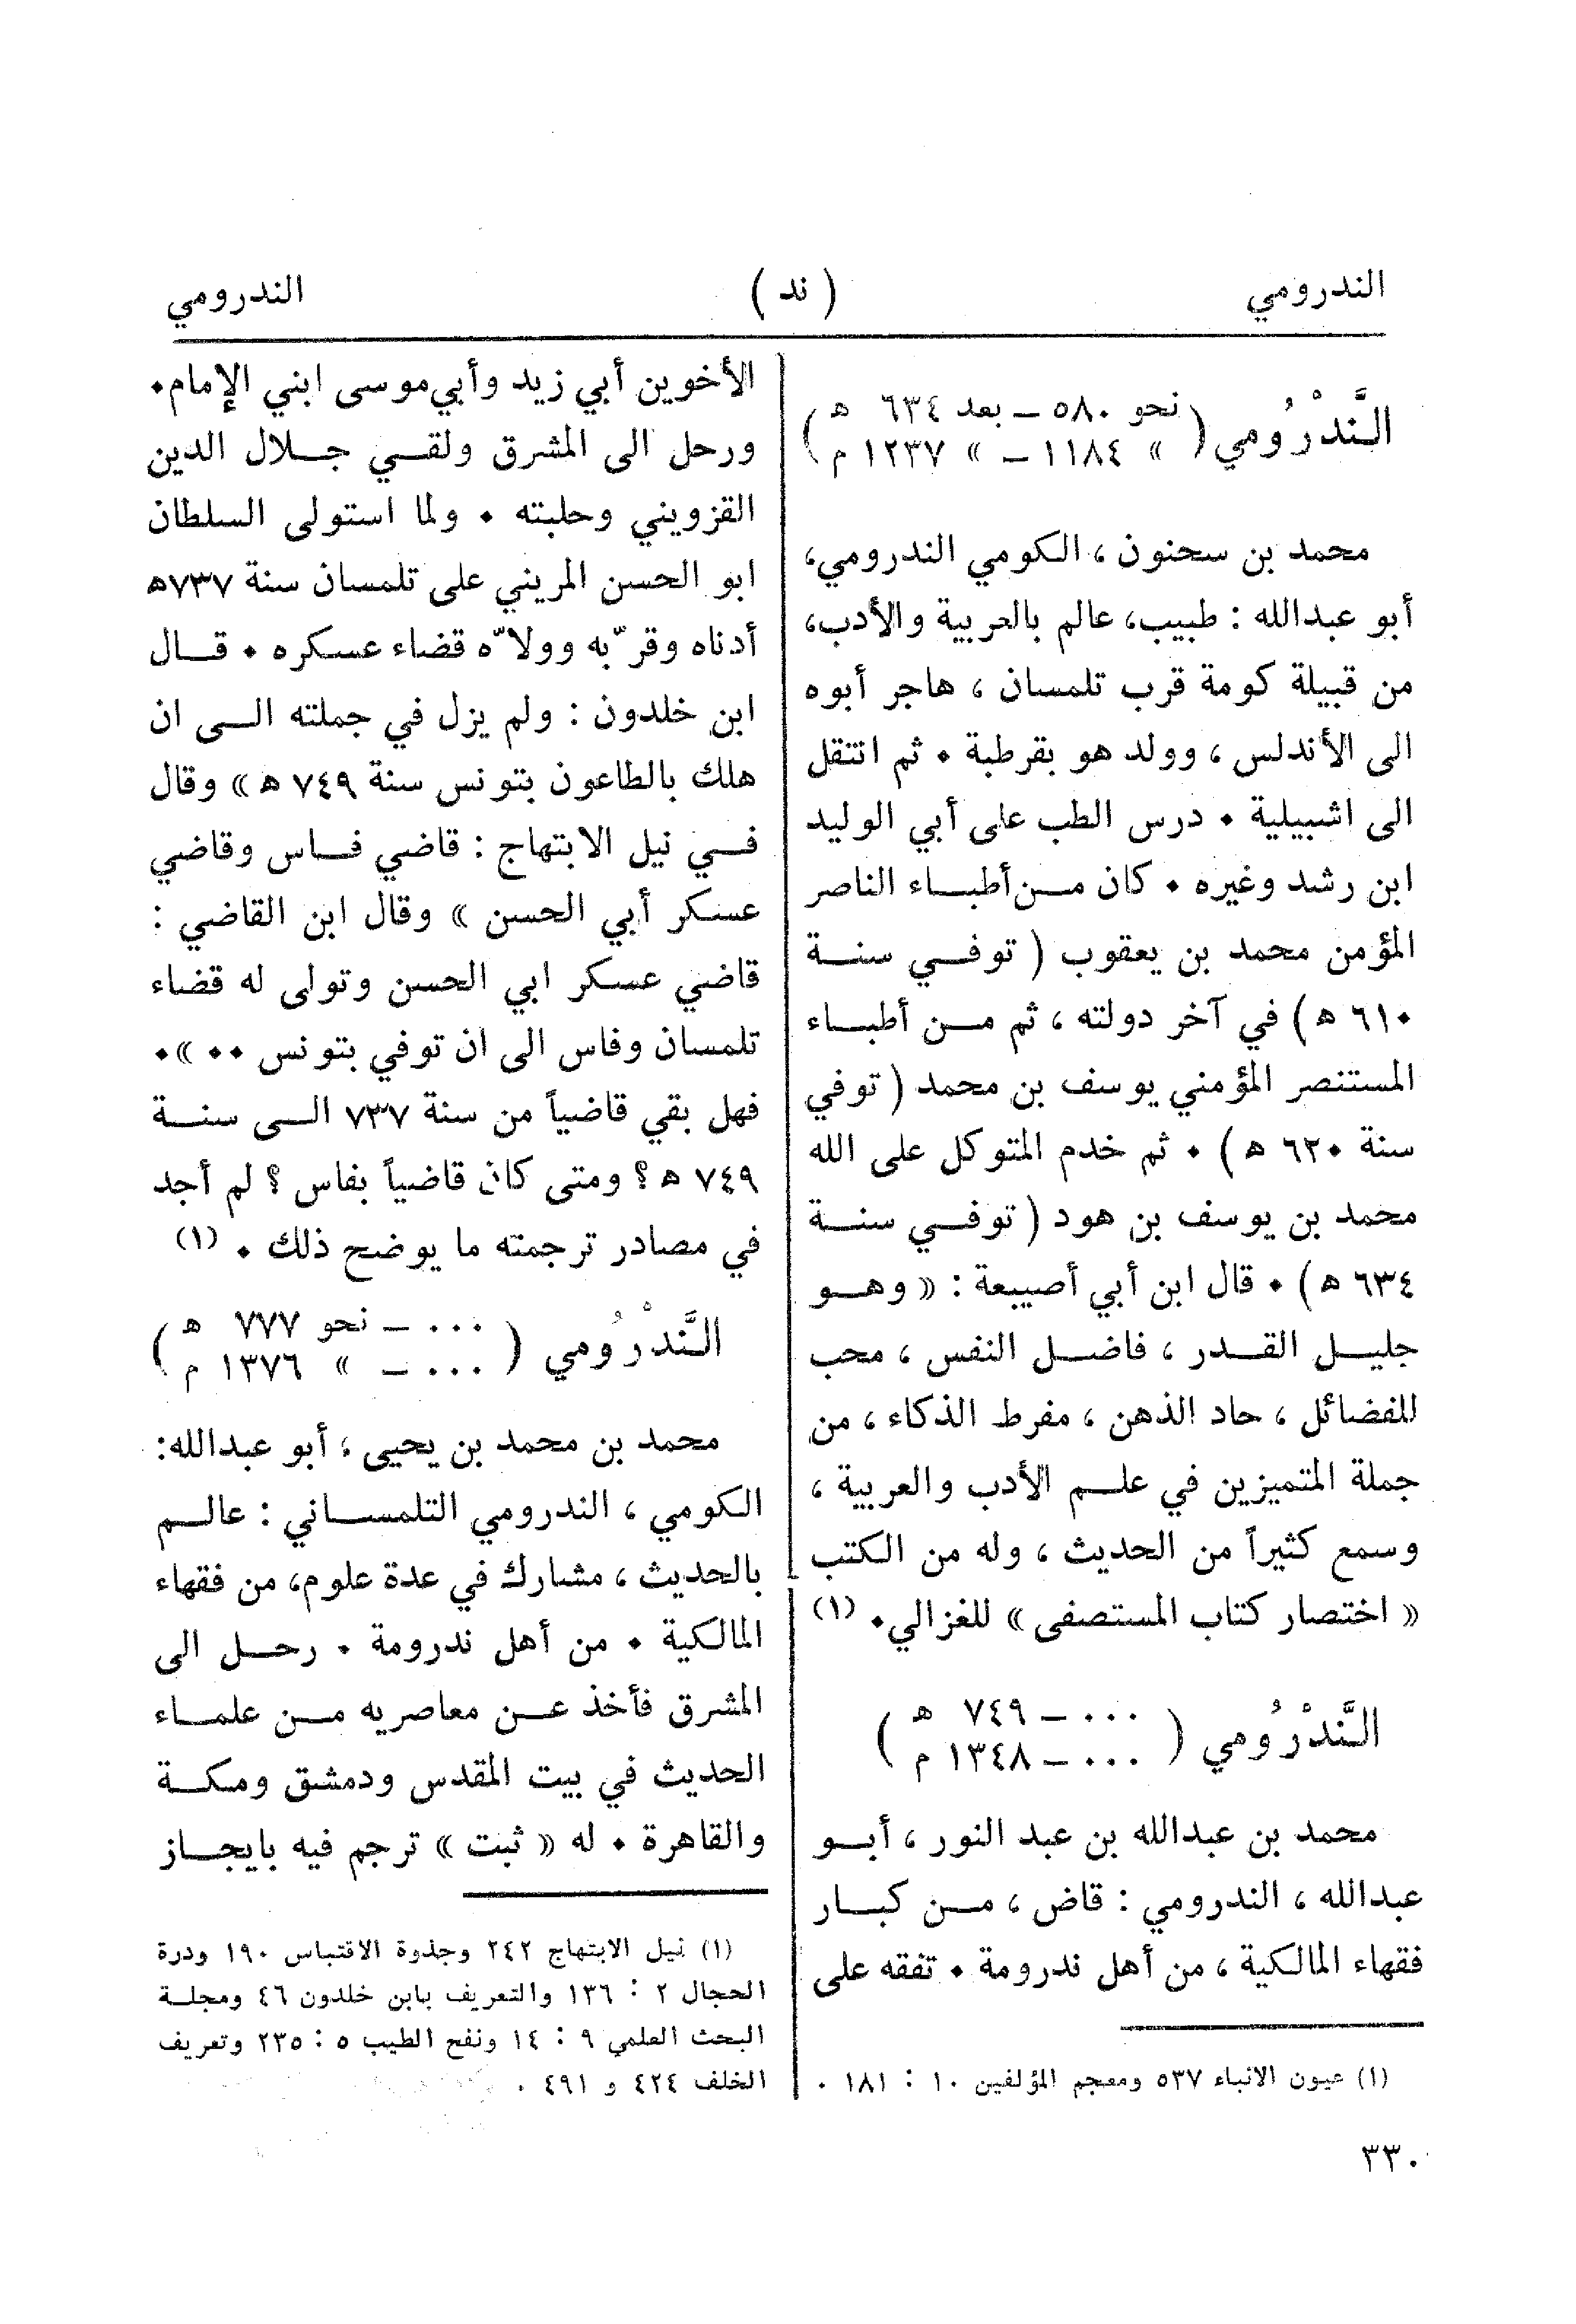 الندرومي ( ند ) الندرومي
النَّدْرُومي ( نحو ٥٨٠ – بعد ٦٣٤ هـ
» ١١٨٤ – » ١٢٣٧ م )
محمد بن سحنون ، الكومي الندرومي،
أبو عبدالله : طبيب، عالم بالعربية والأدب،
من قبيلة كومة قرب تلمسان ، هاجر أبوه
الى الأندلس ، وولد هو بقرطبة . ثم انتقل
الى اشبيلية . درس الطب على أبي الوليد
ابن رشد وغيره . كان من أطباء الناصر
المؤمن محمد بن يعقوب ( توفي سنة
٦١٠ هـ ) في آخر دولته ، ثم من أطباء
المستنصر المؤمني يوسف بن محمد ( توفي
سنة ٦٢٠ هـ ) . ثم خدم المتوكل على الله
محمد بن يوسف بن هود ( توفي سنة
٦٣٤ هـ ) . قال ابن أبي أصيبعة : « وهو
جليل القدر ، فاضل النفس ، محب
للفضائل ، حاد الذهن ، مفرط الذكاء ، من
جملة المتميزين في علم الأدب والعربية ،
وسمع كثيراً من الحديث ، وله من الكتب
« اختصار كتاب المستصفى » للغزالي. (١)
النَّدْرُومي ( ... – ٧٤٩ هـ
... – ١٣٤٨ م )
محمد بن عبدالله بن عبد النور ، أبو
عبدالله ، الندرومي : قاض ، من كبار
فقهاء المالكية ، من أهل ندرومة . تفقه على
(١) عيون الانباء ٥٣٧ ومعجم المؤلفين ١٠ : ١٨١ .
الأخوين أبي زيد وأبي موسى ابني الإمام.
ورحل الى المشرق ولقي جلال الدين
القزويني وحلبته . ولما استولى السلطان
ابو الحسن المريني على تلمسان سنة ٧٣٧هـ
أدناه وقرّبه وولاّه قضاء عسكره . قال
ابن خلدون : ولم يزل في جملته الى ان
هلك بالطاعون بتونس سنة ٧٤٩ هـ » وقال
في نيل الابتهاج : قاضي فاس وقاضي
عسكر أبي الحسن » وقال ابن القاضي :
قاضي عسكر ابي الحسن وتولى له قضاء
تلمسان وفاس الى ان توفي بتونس .. ».
فهل بقي قاضياً من سنة ٧٣٧ الى سنة
٧٤٩ هـ ؟ ومتى كان قاضياً بفاس ؟ لم أجد
في مصادر ترجمته ما يوضح ذلك . (١)
النَّدْرُومي ( ... – نحو ٧٧٧ هـ
... – » ١٣٧٦ م )
محمد بن محمد بن يحيى ، أبو عبدالله:
الكومي ، الندرومي التلمساني : عالم
بالحديث ، مشارك في عدة علوم، من فقهاء
المالكية . من أهل ندرومة . رحل الى
المشرق فأخذ عن معاصريه من علماء
الحديث في بيت المقدس ودمشق ومكة
والقاهرة . له « ثبت » ترجم فيه بايجاز
(١) نيل الابتهاج ٢٤٢ وجذوة الاقتباس ١٩٠ ودرة
الحجال ٢ : ١٣٦ والتعريف بابن خلدون ٤٦ ومجلة
البحث العلمي ٩ : ١٤ ونفح الطيب ٥ : ٢٣٥ وتعريف
الخلف ٤٢٤ و ٤٩١ .
٣٣٠